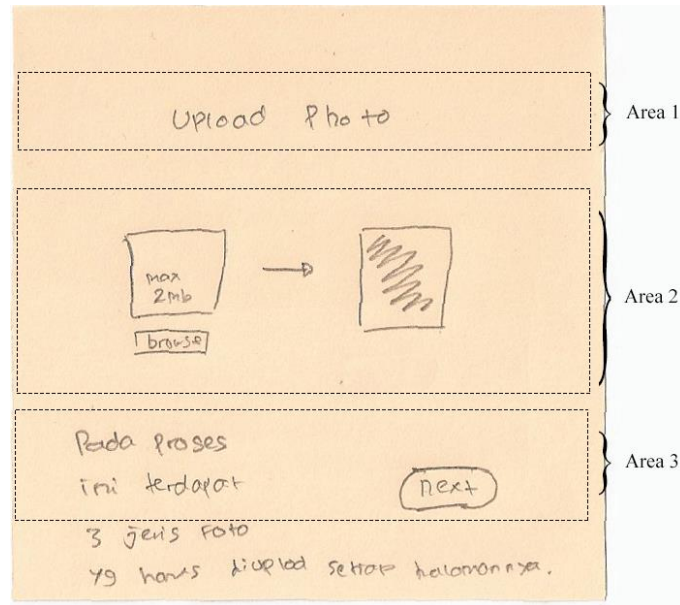 Upload Photo
Area 1
max
2mb
browse
Area 2
Pada proses
ini terdapat
next
Area 3
3 jenis Foto
yg harus diuplod setiap halamannya.